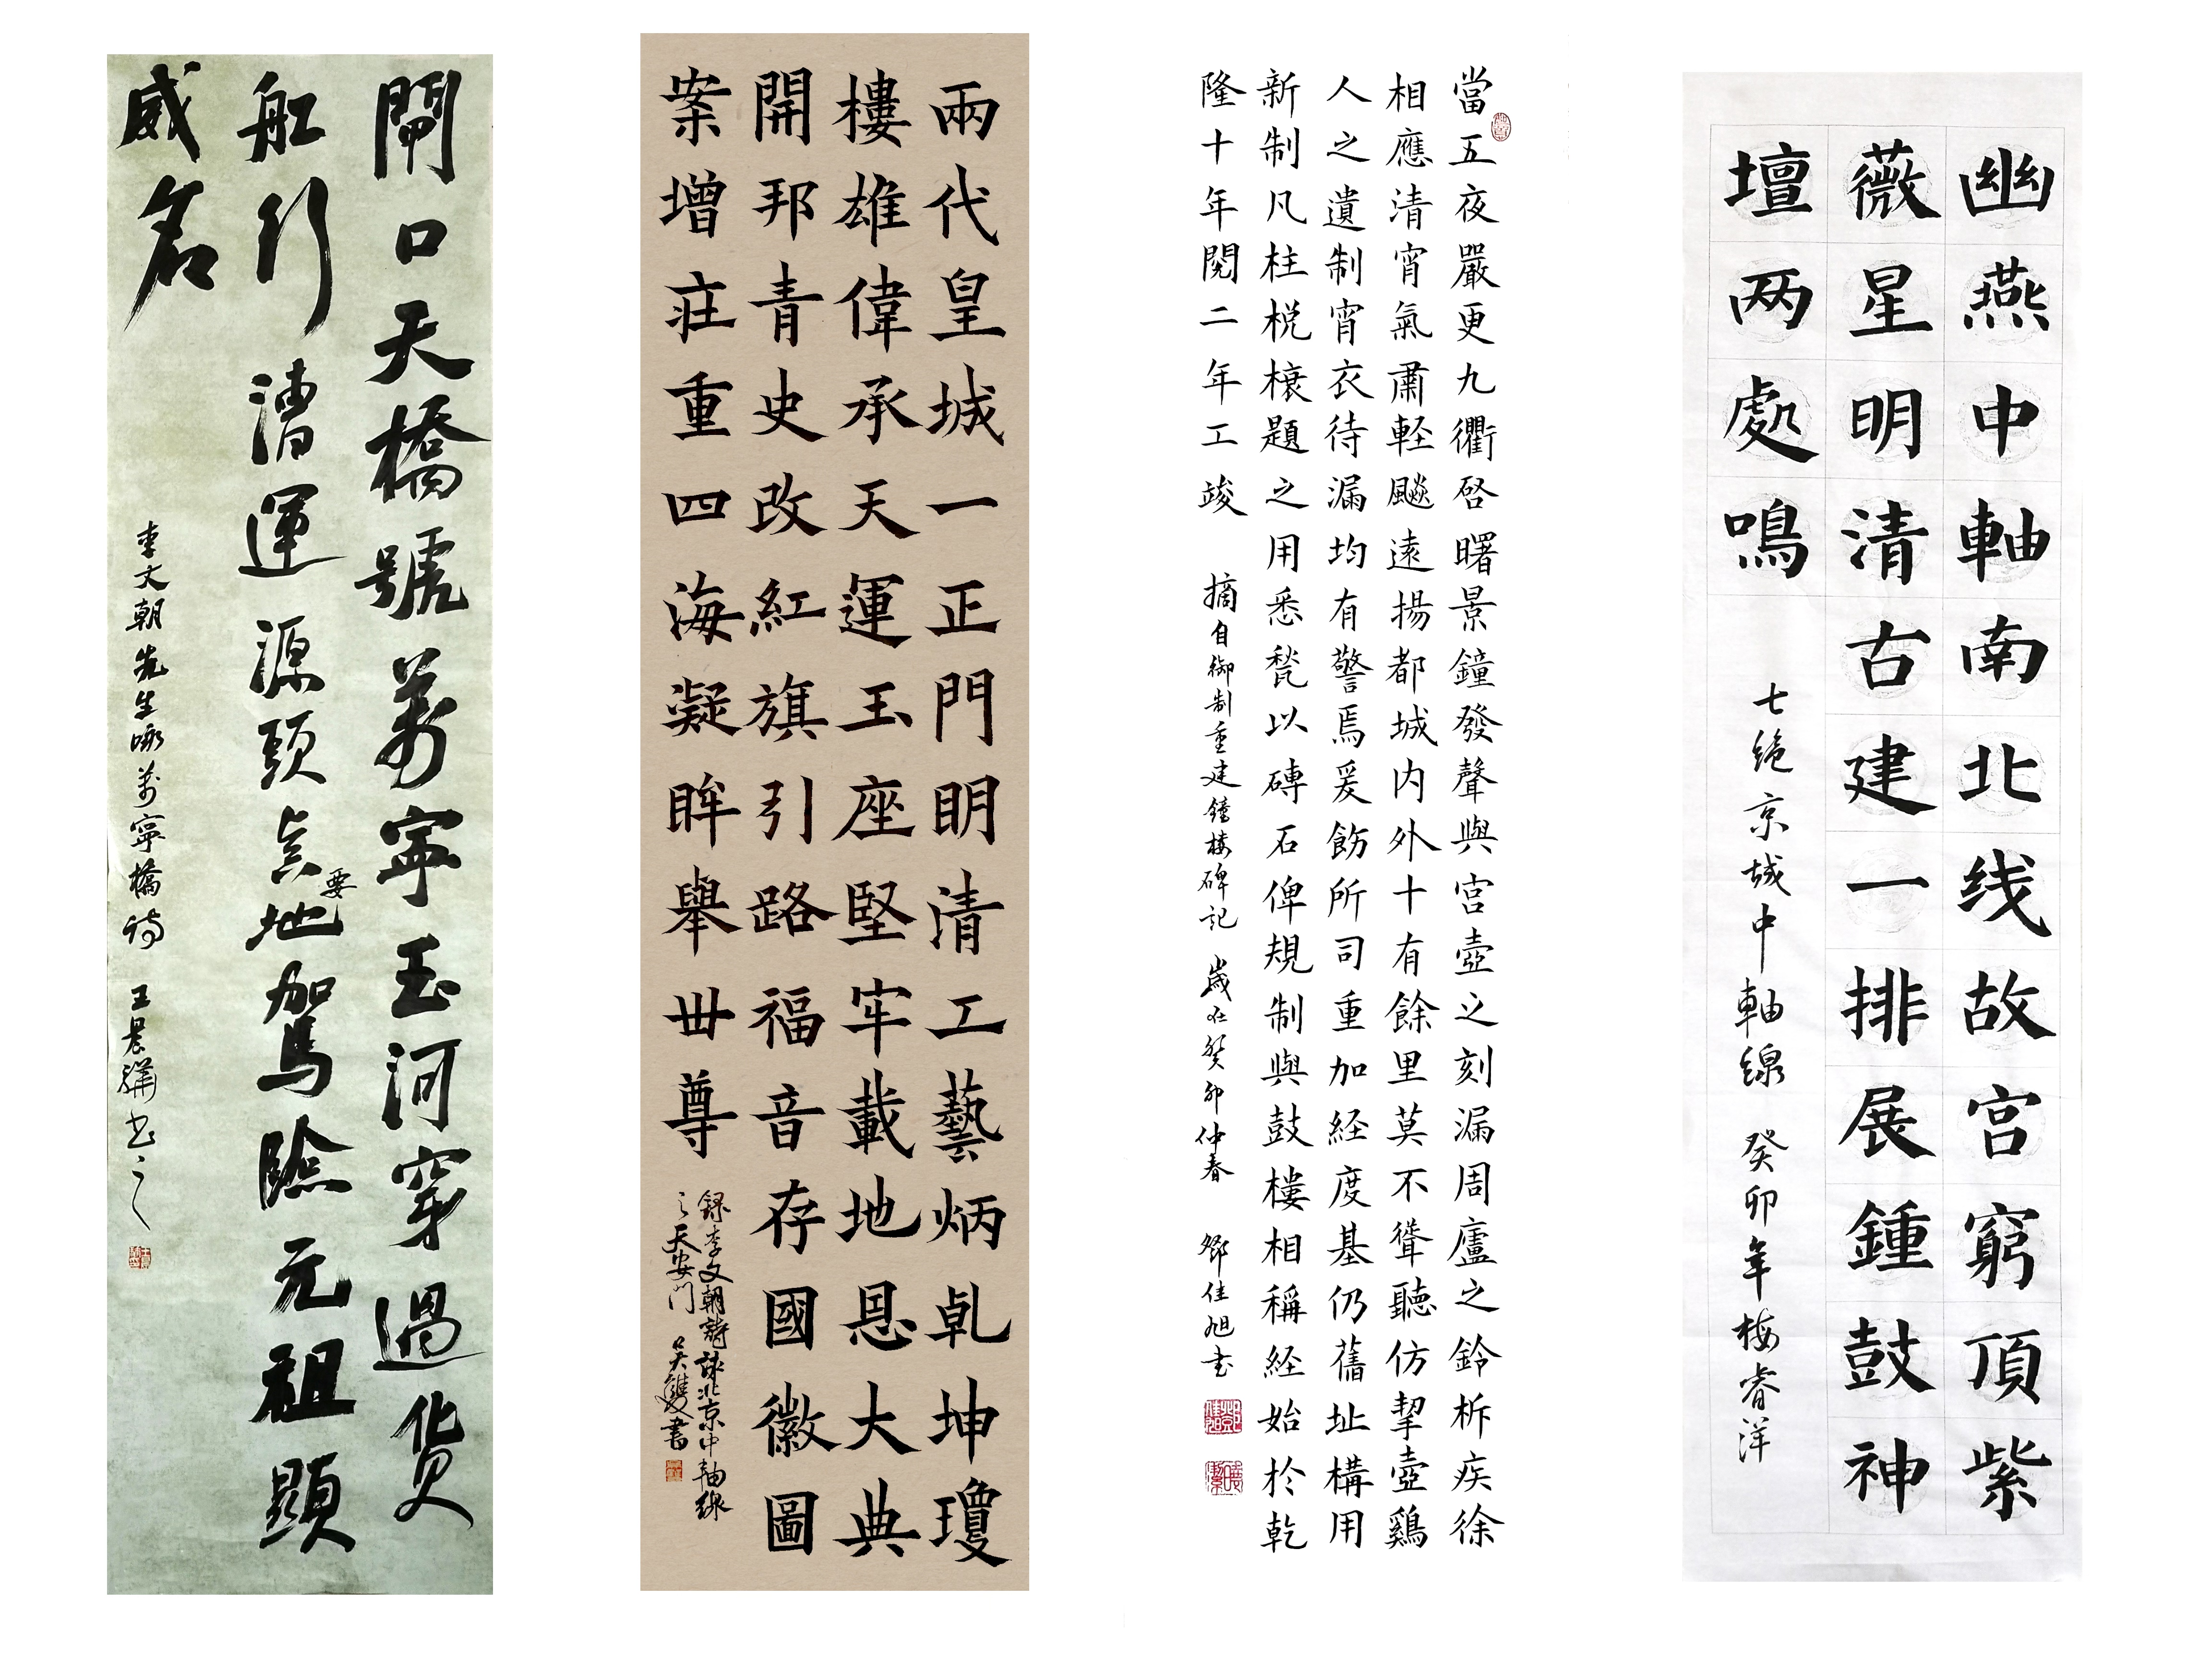 幽燕中軸南北线故宫窮頂紫
薇星明清古建一排展鍾鼓神
壇两處鳴
七绝京城中軸線 癸卯年梅睿洋
當五夜嚴更九衢啓曙景鐘發聲與宫壺之刻漏周廬之鈴柝疾徐
相應清宵氣肅軽飈遠揚都城内外十有餘里莫不聳聽仿挈壺鷄
人之遺制宵衣待漏均有警焉爰飭所司重加経度基仍舊址構用
新制凡柱棁榱題之用悉甃以磚石俾規制與鼓樓相稱経始於乾
隆十年閱二年工竣 摘自御制重建鐘楼碑記 歲在癸卯仲春 佳旭书
兩代皇城一正門明清工藝炳乹坤瓊
樓雄偉承天運玉座堅牢載地恩大典
開邦青史改紅旗引路福音存國徽圖
案增莊重四海凝眸舉世尊
録李文朝詩詠北京中軸線
之天安門 吴雙書
閘口天橋號萬寧玉河穿過货
船行漕運源頭真要地駕險元祖顯
威名
李文朝先生咏萬寧橋詩 王晨书之